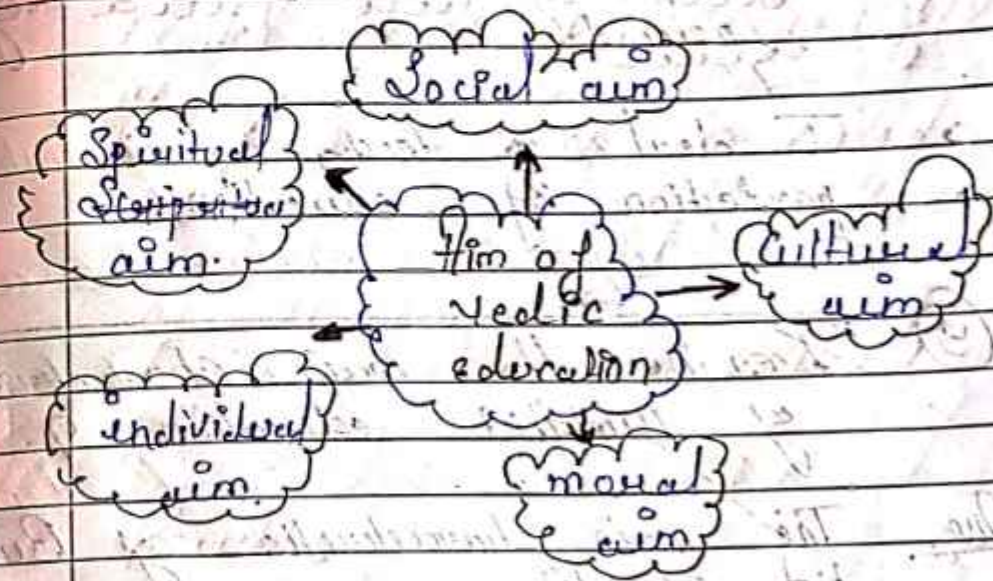 Social aim
Spiritual
aim.
Aim of
vedic
education
Cultural
aim
individual
aim.
moral
aim